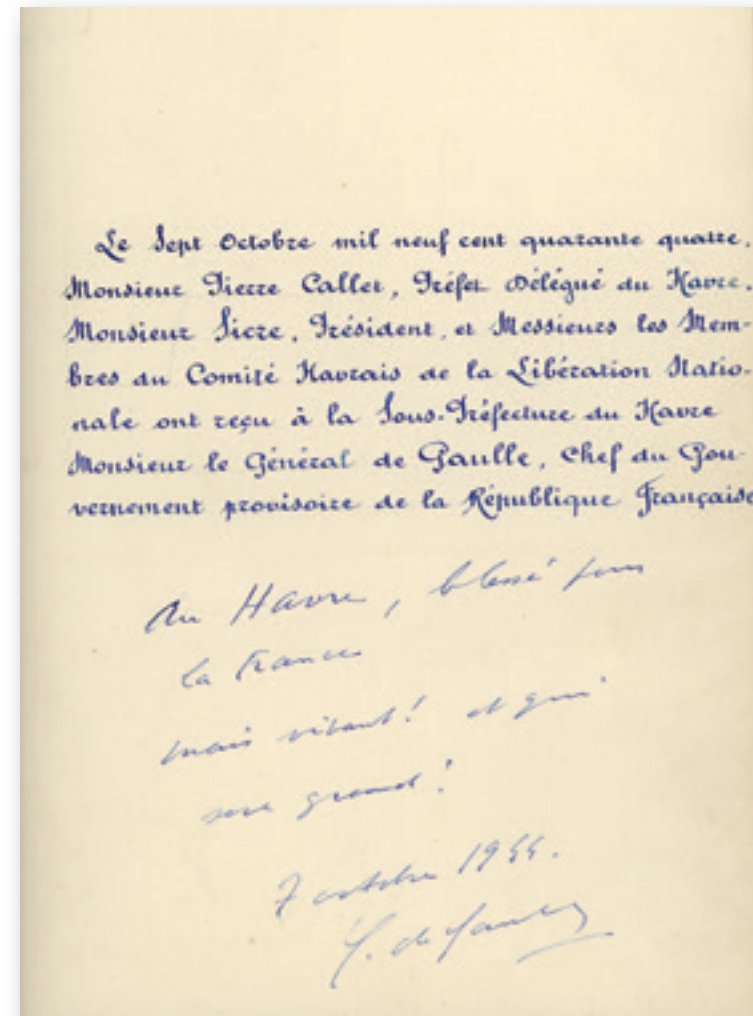 Le Sept Octobre mil neuf cent quarante quatre,
Monsieur Pierre Callet, Préfet Délégué du Havre,
Monsieur Sicre, Président, et Messieurs les Mem-
bres du Comité Havrais de la Libération Natio-
nale ont reçu à la Sous-Préfecture du Havre
Monsieur le Général de Gaulle, Chef du Gou-
vernement provisoire de la République Française
Au Havre, blessé pour
la France
mais vivant! et qui
sera grand!
7 octobre 1944.
C. de Gaulle